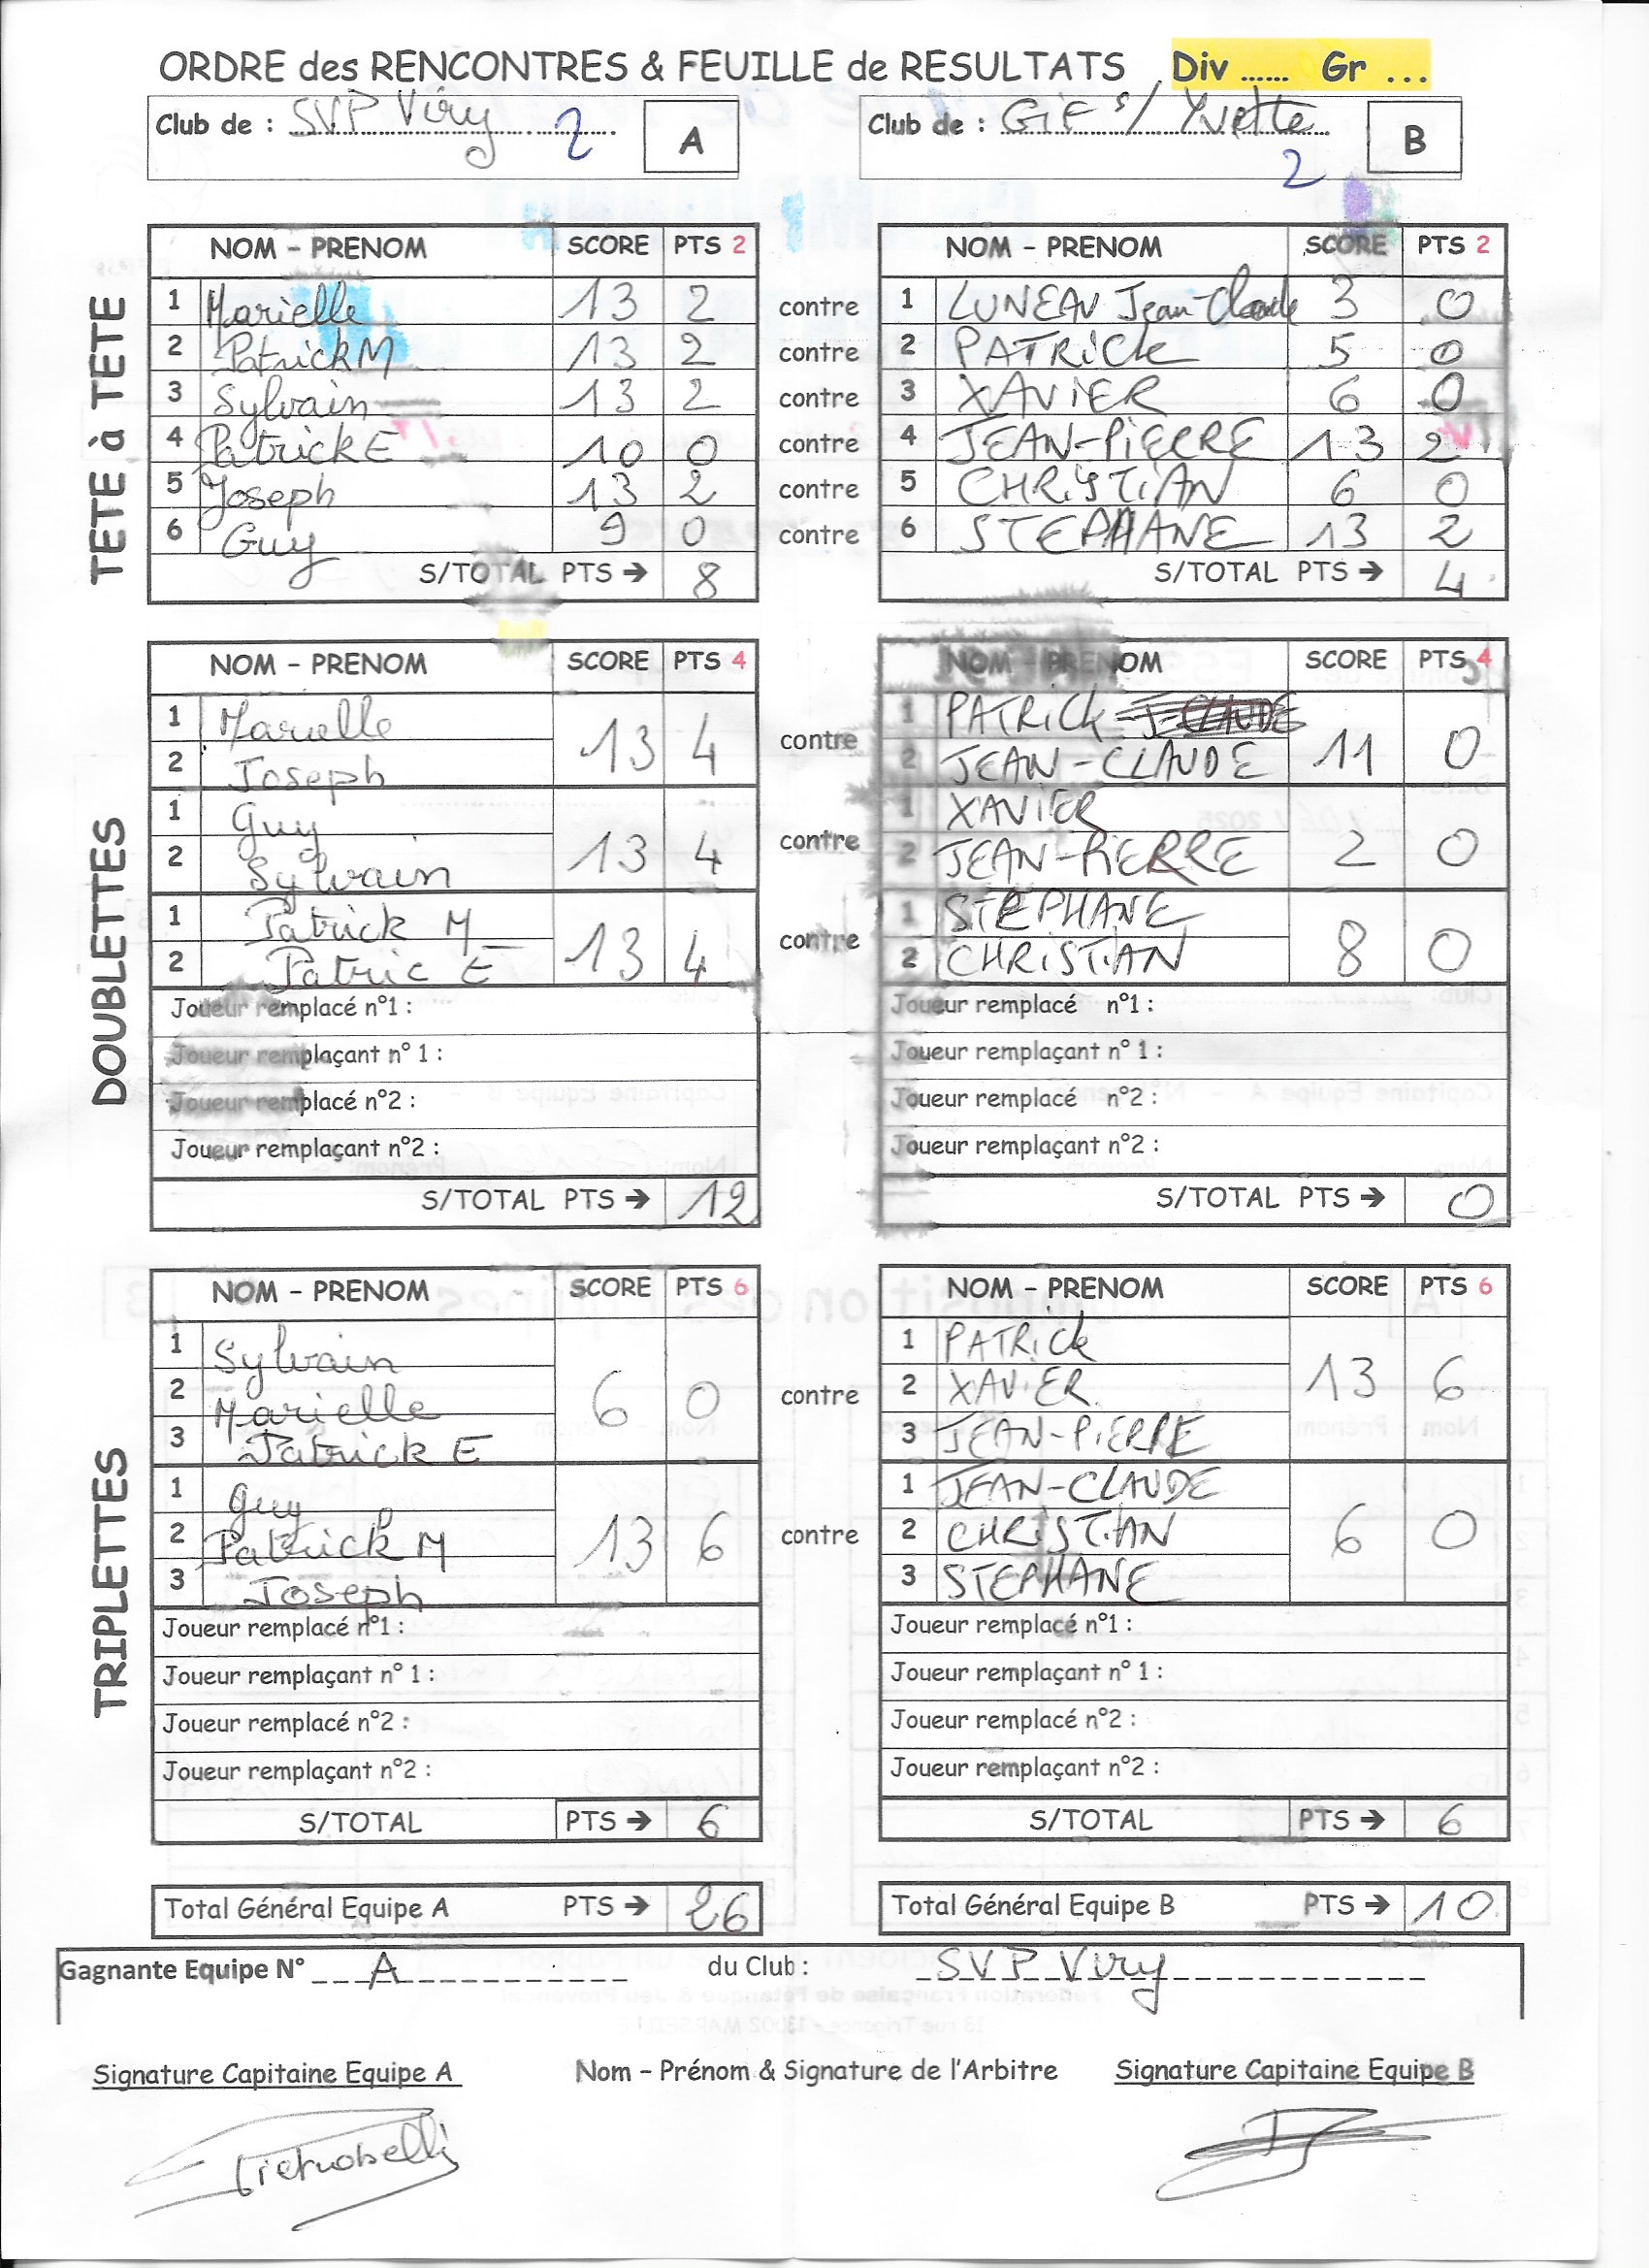 ORDRE des RENCONTRES & FEUILLE de RESULTATS Div ...... Gr ...
Club de : SVP Viry 2 A
Club de : GiF s/ Yvette 2 B
TETE à TETE
NOM - PRENOM SCORE PTS 2 NOM - PRENOM SCORE PTS 2
1 Marielle 13 2 contre 1 LUNEAU Jean-Claude 3 0
2 Patrick M 13 2 contre 2 PATRICK 5 0
3 Sylvain 13 2 contre 3 XAVIER 6 0
4 Patrick E 10 0 contre 4 JEAN-PIERRE 13 2
5 Joseph 13 2 contre 5 CHRISTIAN 6 0
6 Guy 9 0 contre 6 STEPHANE 13 2
S/TOTAL PTS → 8 S/TOTAL PTS → 4
DOUBLETTES
NOM - PRENOM SCORE PTS 4 NOM - PRENOM SCORE PTS 4
1 Marielle 13 4 contre 1 PATRICK J-CLAUDE 11 0
2 Joseph 2 JEAN-CLAUDE
1 Guy 13 4 contre 1 XAVIER 2 0
2 Sylvain 2 JEAN-PIERRE
1 Patrick M 13 4 contre 1 STEPHANE 8 0
2 Patric E 2 CHRISTIAN
Joueur remplacé n°1 : Joueur remplacé n°1 :
Joueur remplaçant n° 1 : Joueur remplaçant n° 1 :
Joueur remplacé n°2 : Joueur remplacé n°2 :
Joueur remplaçant n°2 : Joueur remplaçant n°2 :
S/TOTAL PTS → 12 S/TOTAL PTS → 0
TRIPLETTES
NOM - PRENOM SCORE PTS 6 NOM - PRENOM SCORE PTS 6
1 Sylvain 6 0 contre 1 PATRICK 13 6
2 Marielle 2 XAVIER
3 Patrick E 3 JEAN-PIERRE
1 Guy 13 6 contre 1 JEAN-CLAUDE 6 0
2 Patrick M 2 CHRISTIAN
3 Joseph 3 STEPHANE
Joueur remplacé n°1 : Joueur remplacé n°1 :
Joueur remplaçant n° 1 : Joueur remplaçant n° 1 :
Joueur remplacé n°2 : Joueur remplacé n°2 :
Joueur remplaçant n°2 : Joueur remplaçant n°2 :
S/TOTAL PTS → 6 S/TOTAL PTS → 6
Total Général Equipe A PTS → 26 Total Général Equipe B PTS → 10
Gagnante Equipe N° A du Club : SVP Viry
Signature Capitaine Equipe A Nom - Prénom & Signature de l'Arbitre Signature Capitaine Equipe B